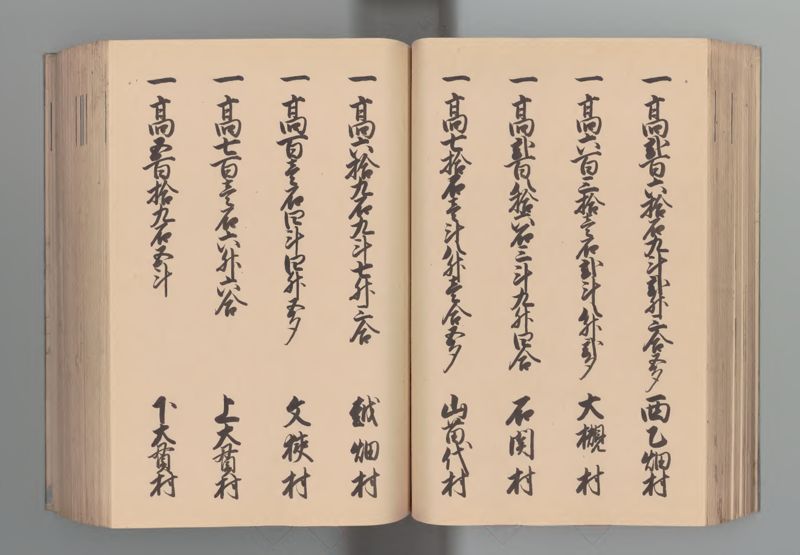 一 高弐百六拾石九斗弐升三合五夕 西乙畑村
一 高六百三拾壱石弐斗八升弐夕 大槻村
一 高弐百八拾六石三斗九升四合 石関村
一 高七拾石壱斗八升壱合五夕 山苗代村
一 高六拾九石九斗七升三合 越畑村
一 高百壱石四斗四升五夕 文狭村
一 高七百壱石六升六合 上大貫村
一 高五百拾九石五斗 下大貫村